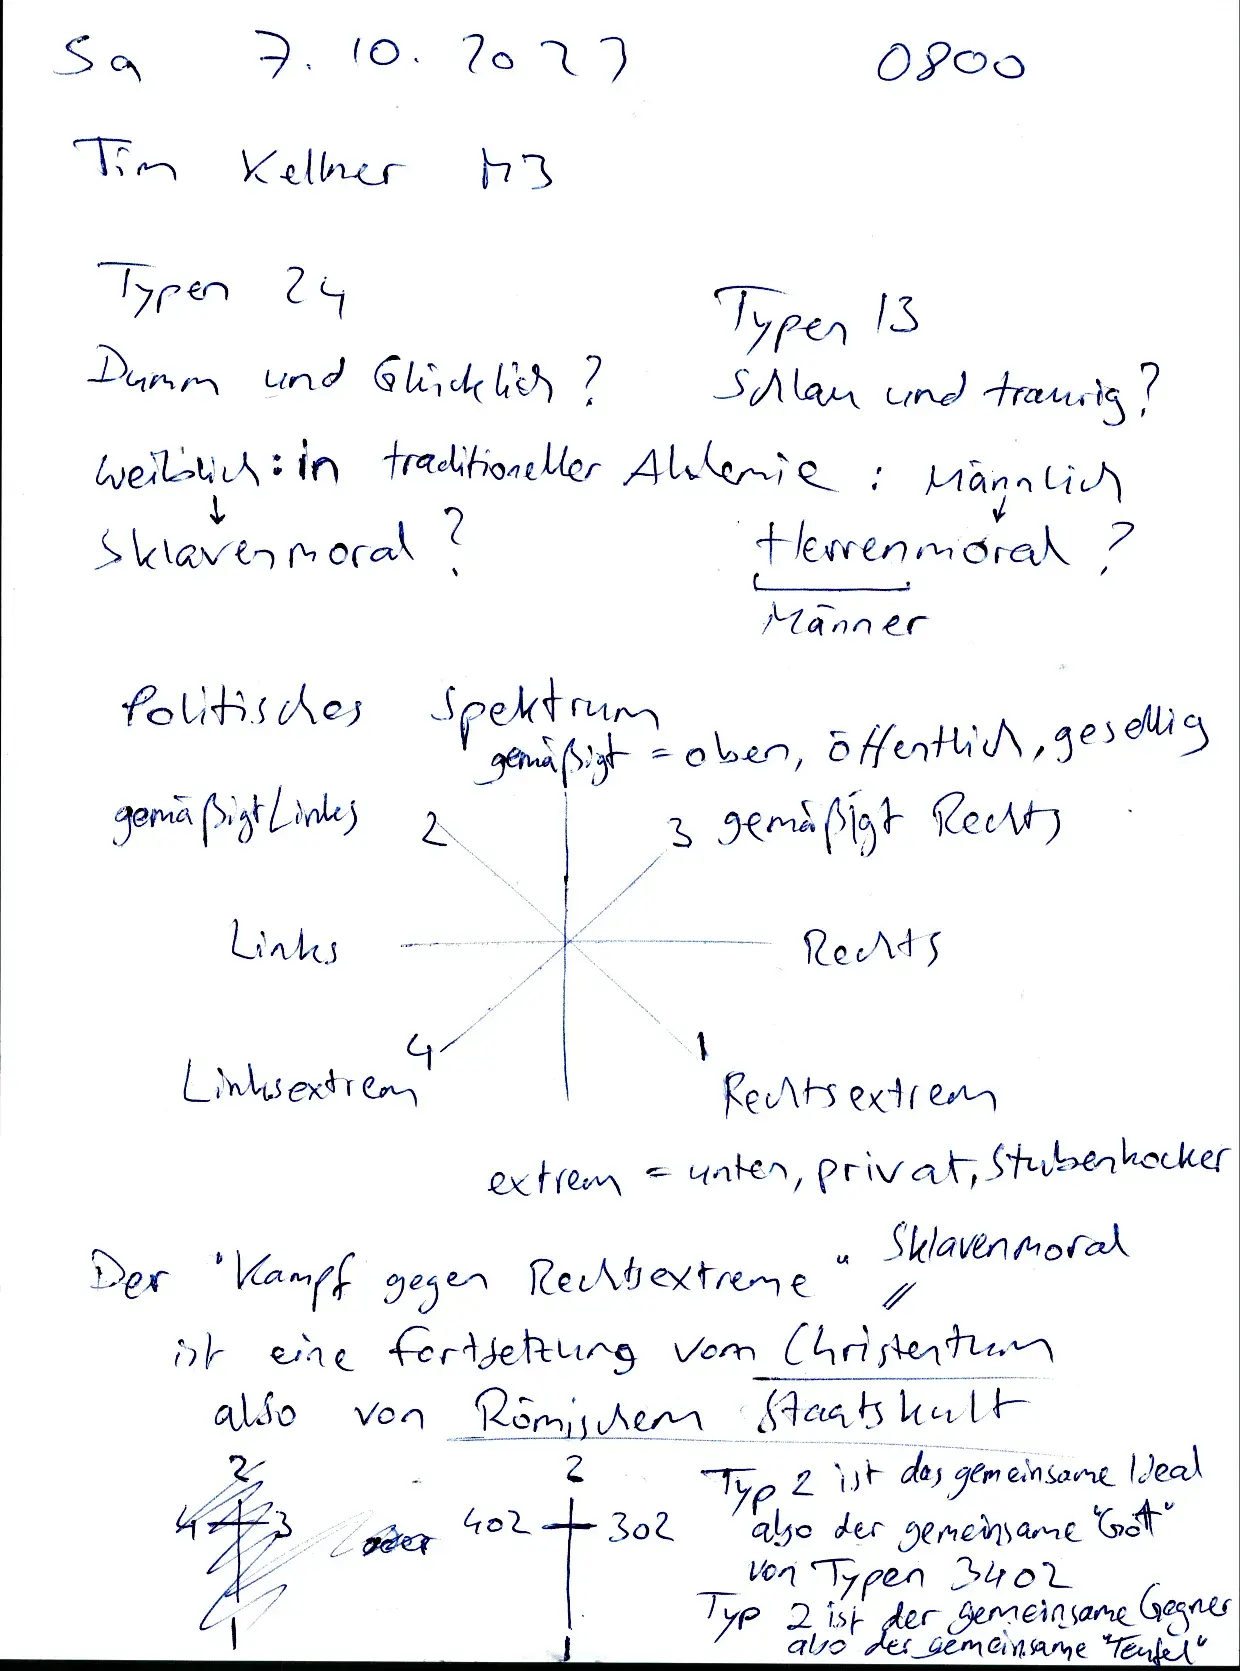 Sa 7.10.2023 0800
Tim Kellner M3
Typen 24 Typen 13
Dumm und Glücklich? Schlau und traurig?
weiblich: in traditioneller Alchemie: Männlich
↓ ↓
Sklavenmoral? Herrenmoral?
Männer
Politisches Spektrum
gemäßigt = oben, öffentlich, gesellig
gemäßigt Links 2 3 gemäßigt Rechts
Links Rechts
4 1
Linksextrem Rechtsextrem
extrem = unten, privat, Stubenhocker
Sklavenmoral
Der "Kampf gegen Rechtsextreme" //
ist eine Fortsetzung vom Christentum
also von Römischem Staatskult
2 2 Typ 2 ist das gemeinsame Ideal
4 3 oder 402 302 also der gemeinsame "Gott"
von Typen 3402
Typ 2 ist der gemeinsame Gegner
1 1 also der gemeinsame "Teufel"